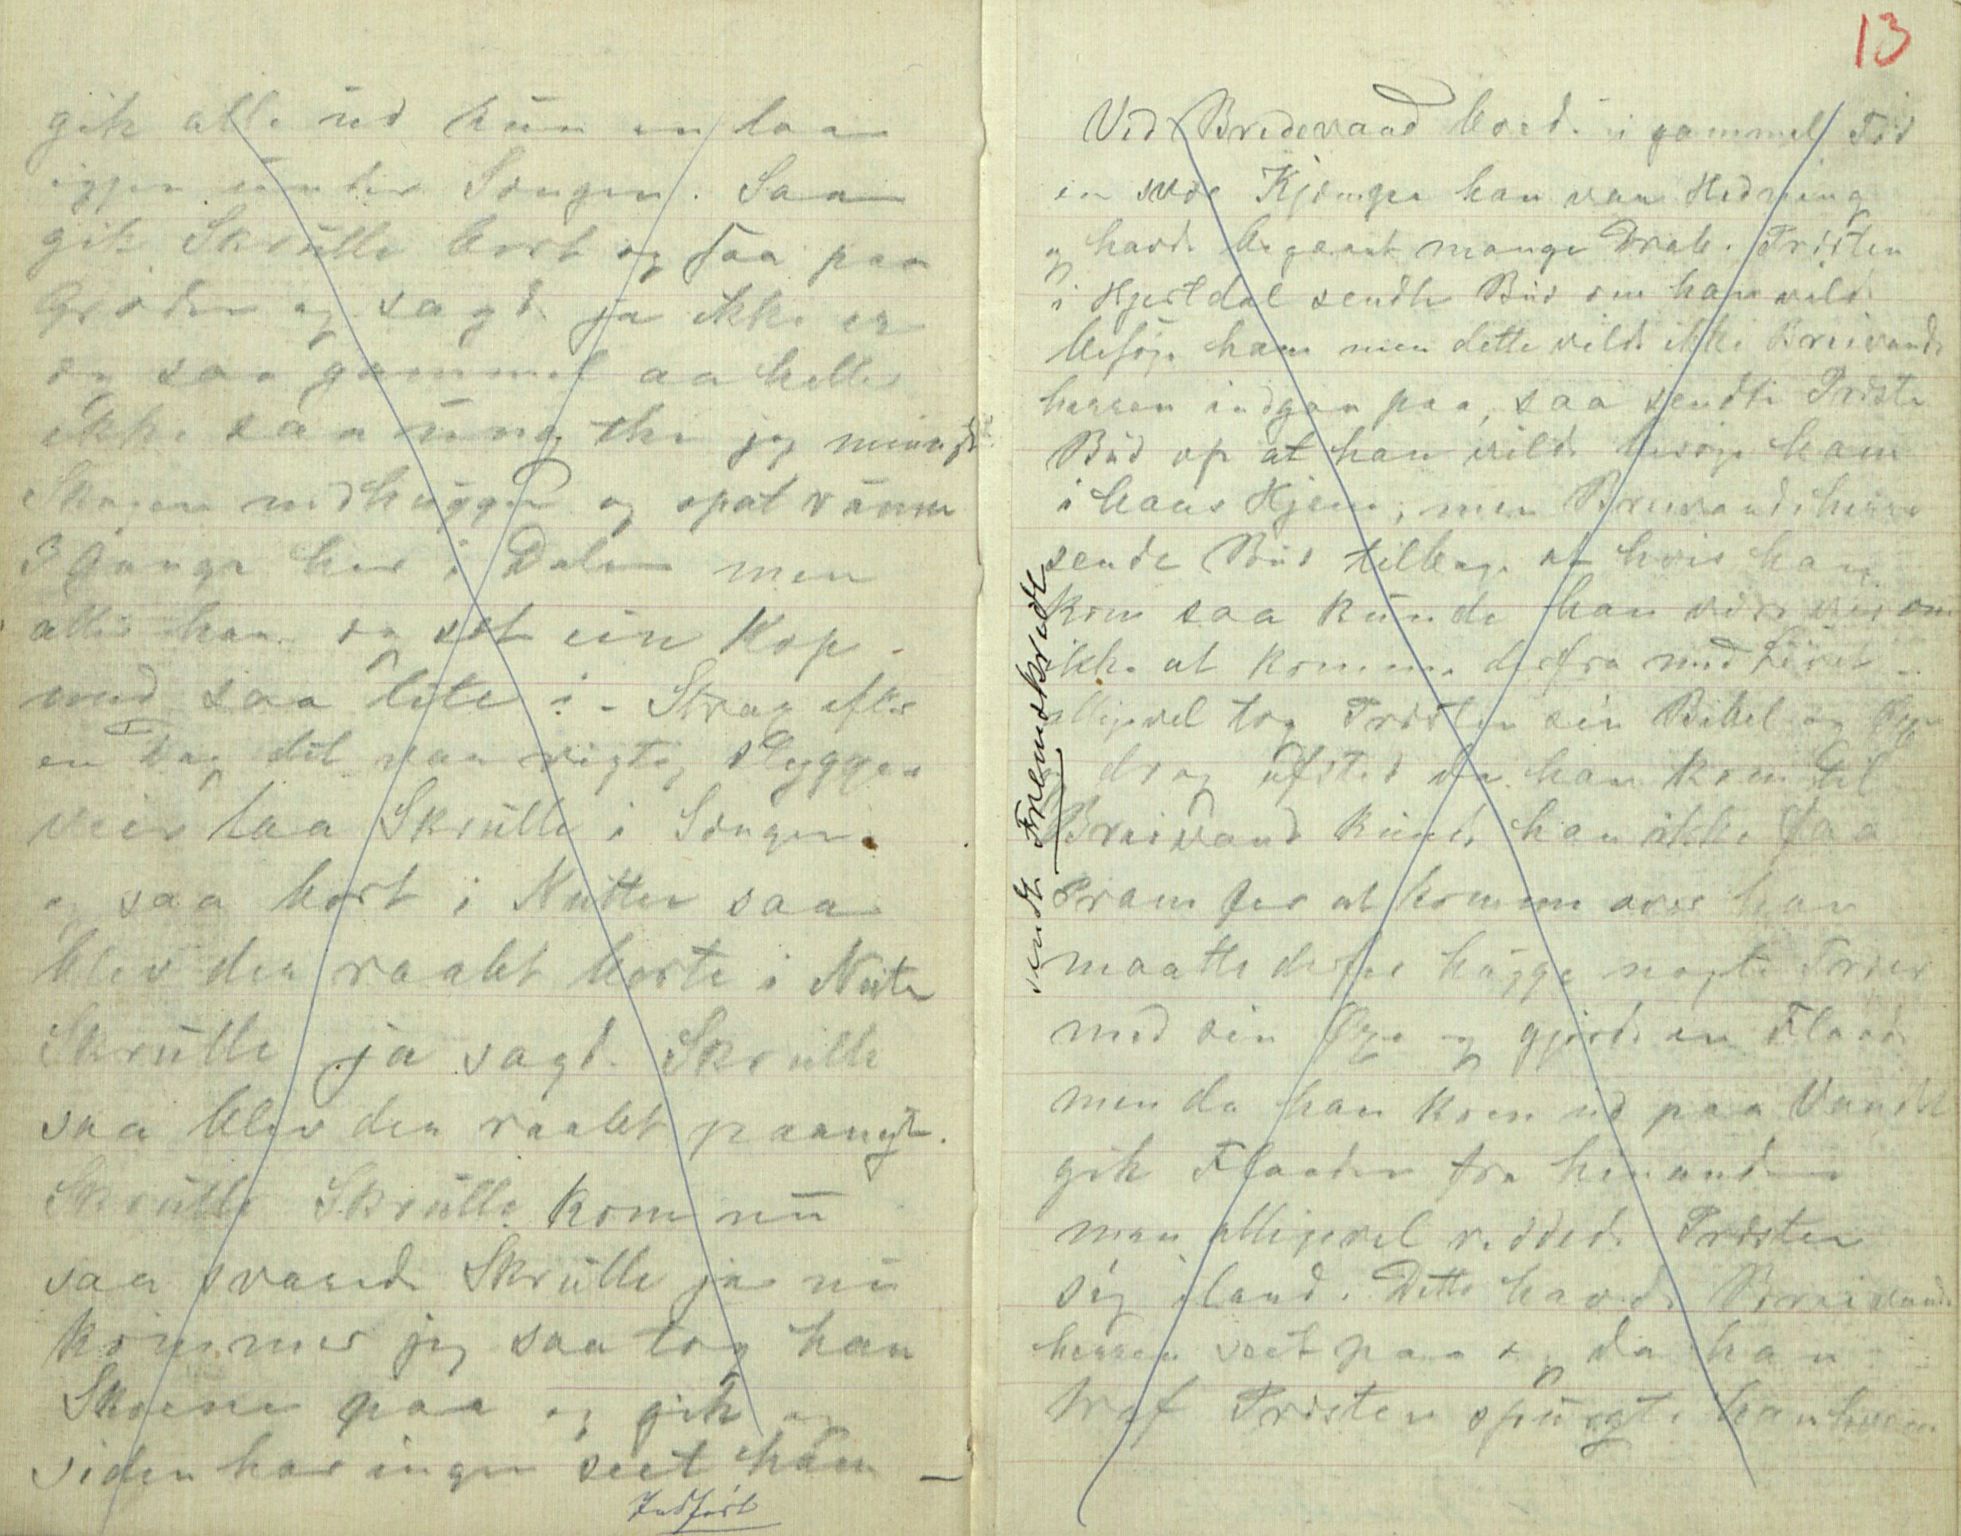 gik alle ud kun en laa
igjen under Sengen. Saa
gik Skrulle bort og saa paa
Grøden og sagde ja ikke er
eg saa gammel aa heller
ikke saa ung thi jeg
Skogen nedhuggen og opat
3 Gange her i Dalen men
har eg set ein Kop
med saa lite i - Strax efter
en Dag det var rigtig stygge
veir laa Skrulle i Sengen.
og saa bort i Nuten saa
blev der raabt borte i Nuten
Skrulle ja sagde Skrulle
saa blev der raabt paanyt.
Skrulle Skrulle kom nu
saa svarede Skrulle ja nu
kommer jeg saa tog han
Skoene paa og gik og
siden har ingen seet ham —
Indført
13
Ved Bredevand boede i gammel Tid
en svær Kjæmpe han var Hedning
og havde begaaet mange Drab. Presten
i Hjertdal sendte Bud om han vilde
besøge ham men dette vilde ikke Breivands
herren indgaa paa, saa sendte Preste
Bud op at han vilde besøge ham
i hans Hjem, men Breivandsherre
sende Bud tilbage at hvis han
kom saa kunde han være vis om
ikke at komme derfra med Livet -
alligevel tog Presten sin Bibel og Øxe
og drog afsted da han kom til
Breivand kunde han ikke faa
Pram for at komme over han
maatte derfor hugge nogle Træer
med sin Øxe og gjorde en Flaade
men da han kom ud paa Vandet
gik Flaaden fra hinanden
men alligevel reddede Presten
sig iland. Dette havde Breivands
herren seet paa og da han
traf Presten spurgte han hvem
sendt Fremskridt